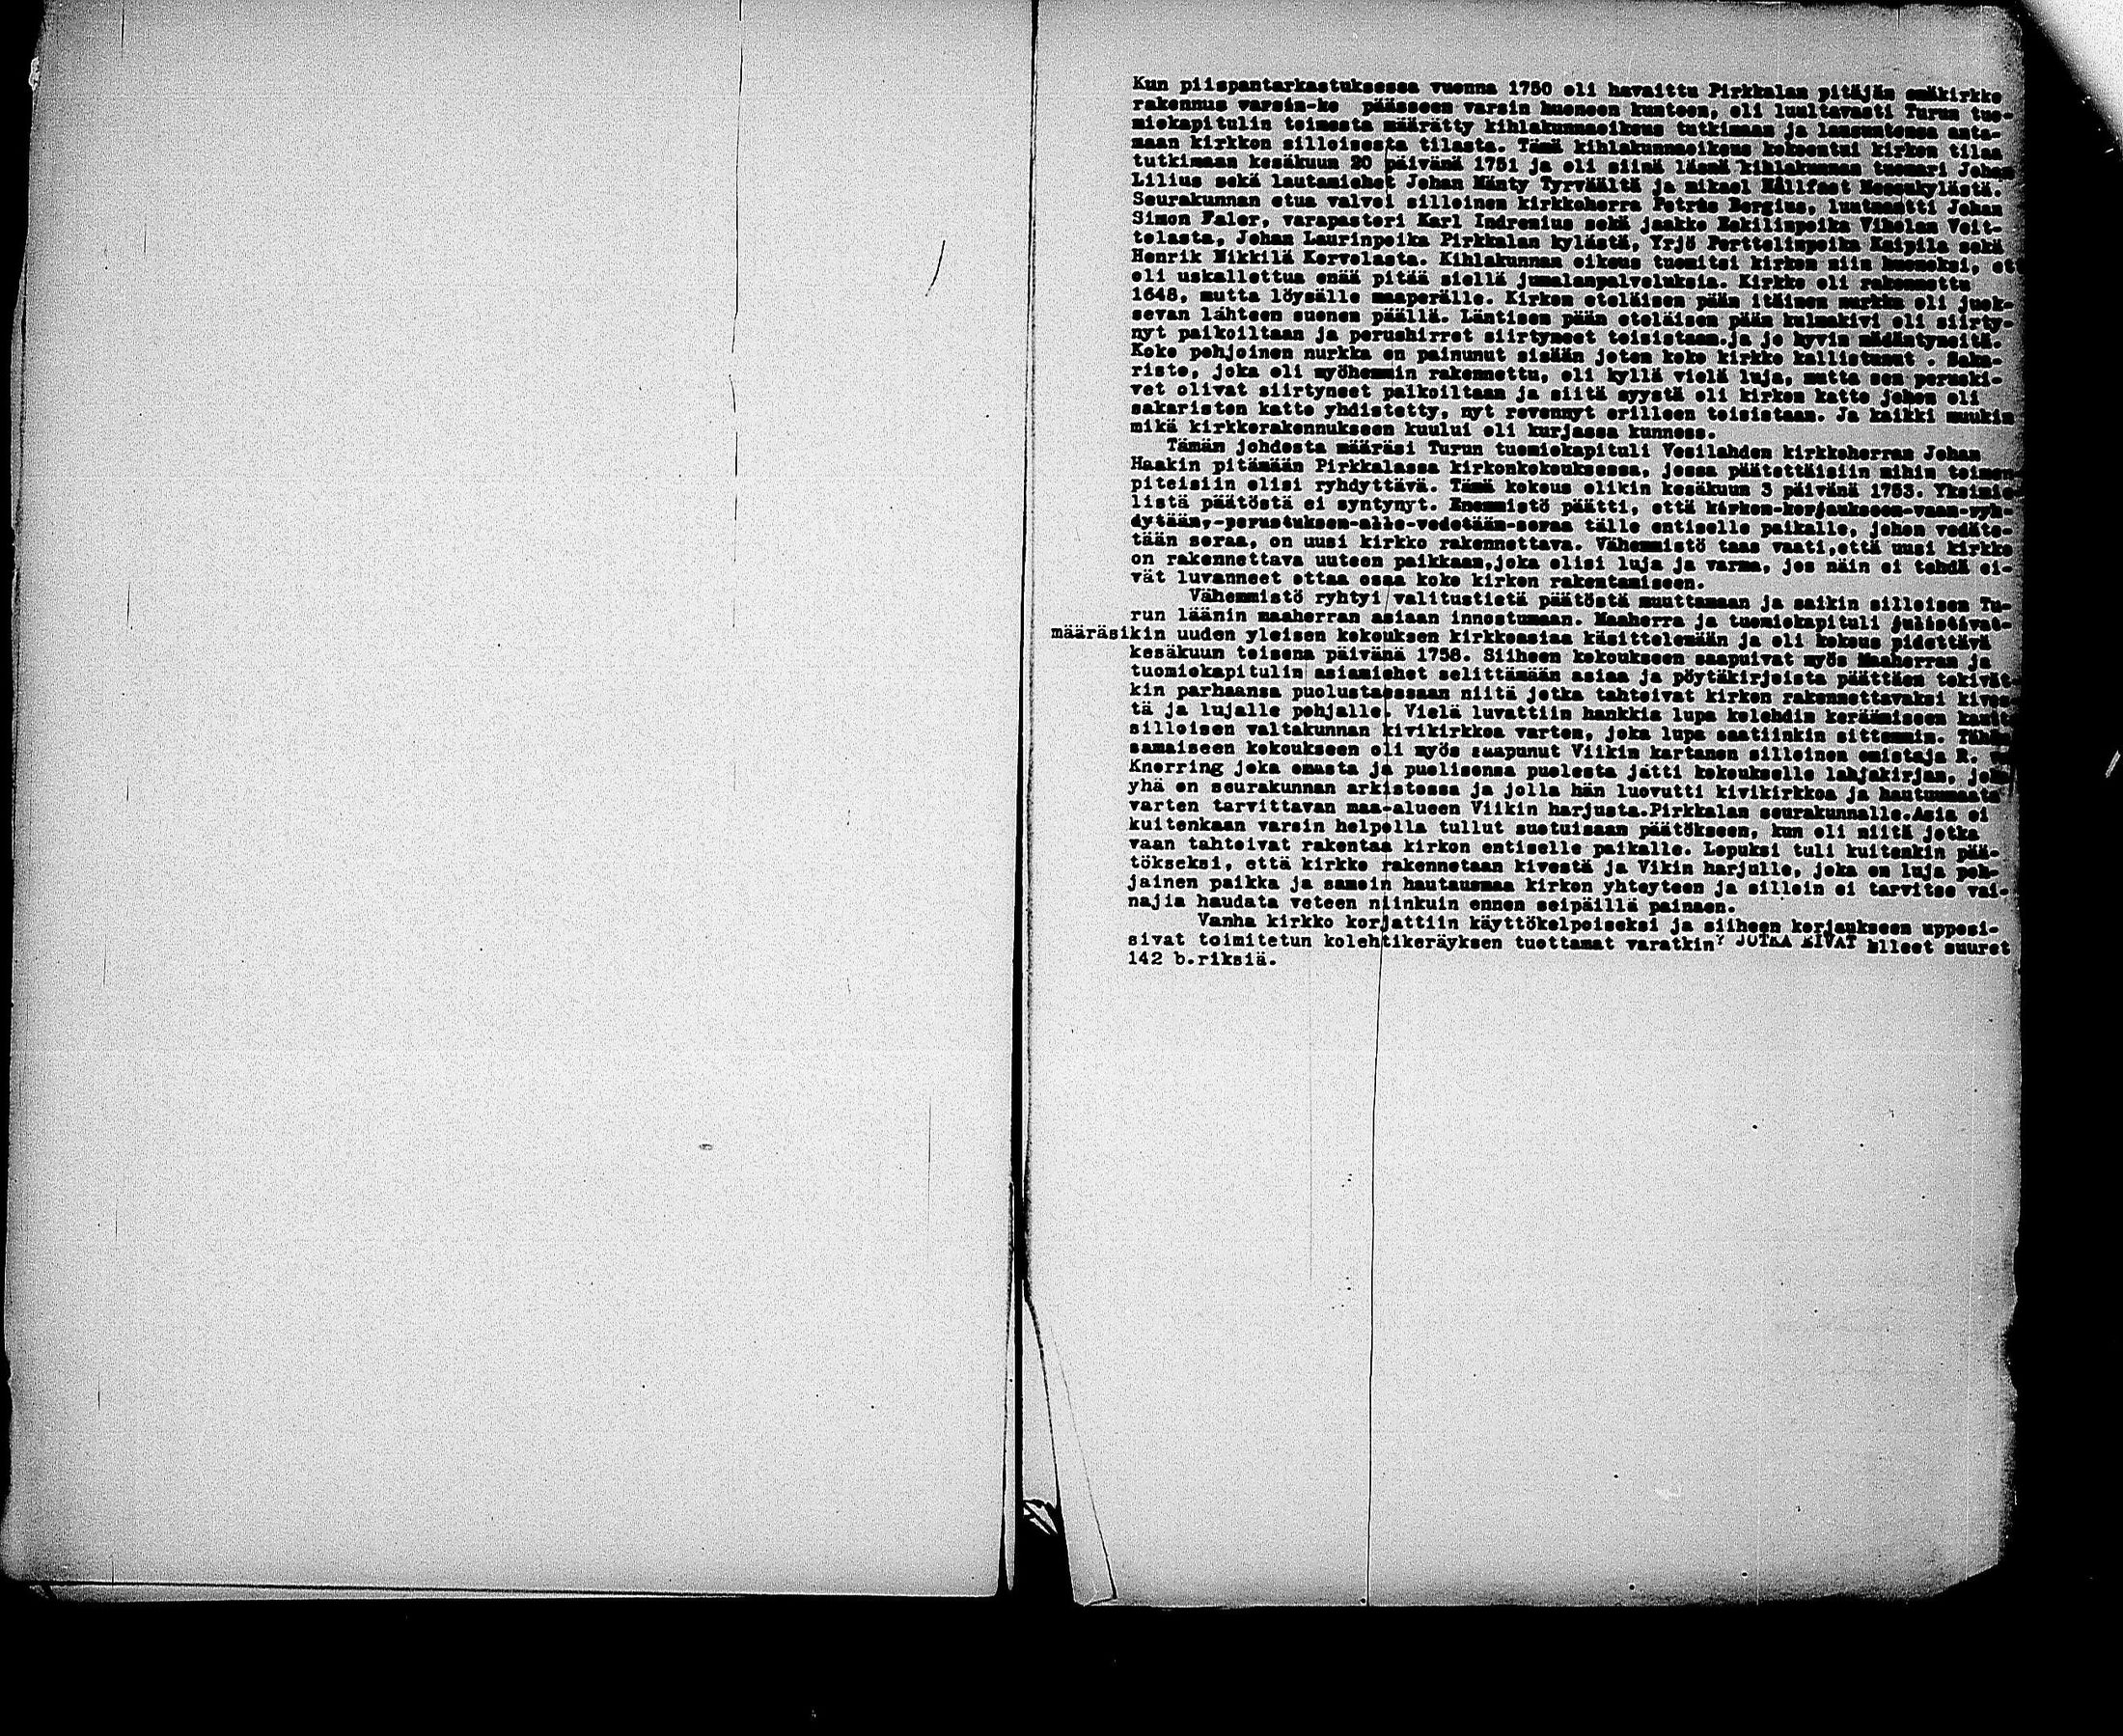 Kun piispantarkastuksessa vuonna 1750 oli havaittu Pirkkalan pitäjän emäkirkko
rakennus varsin-ke päässeen varsin huonoon kuntoon, oli luultavasti Turun tuo-
miokapitulin toimesta määrätty kihlakunnanoikeus tutkimaan ja lausuntonsa anta-
maan kirkkon silloisesta tilasta. Tämä kihlakunnanoikeus kokoontui kirkon tilaa
tutkimaan kesäkuun 20 päivänä 1751 ja oli siinä läsnä kihlakunnan tuomari Johan
Lilius sekä lautamiehet Johan Mänty Tyrväältä ja mikael Hållfast Messukylästä.
Seurakunnan etua valvoi silloinen kirkkoherra Petrus Bergius, luutnantti Johan
Simon Faler, varapastori Karl Indrenius sekä jaakko Eskilinpoika Viholan Voit-
tolasta, Johan Laurinpoika Pirkkalan kylästä, Yrjö Perttelinpoika Kaipila sekä
Henrik Mikkilä Korvolasta. Kihlakunnan oikeus tuomitsi kirkon niin huonoksi, et
oli uskallettua enää pitää siellä jumalanpalveluksia. Kirkko oli rakennettu
1648, mutta löysälle maaperälle. Kirkon eteläisen pään itäinen nurkka oli juok-
sevan lähteen suonen päällä. Läntisen pään eteläisen pään kulmakivi oli siirty-
nyt paikoiltaan ja perushirret siirtyneet toisistaan.ja jo hyvin mädäntyneitä.
Koko pohjoinen nurkka on painunut sisään joten koko kirkko kallistunut . Saka-
risto, joka oli myöhemmin rakennettu, oli kyllä vielä luja, mutta sen peruski-
vet olivat siirtyneet paikoiltaan ja siitä syystä oli kirkon katto johon oli
sakariston katto yhdistetty, nyt revennyt erilleen toisistaan. Ja kaikki muukin
mikä kirkkorakennukseen kuului oli kurjassa kunnoss.
Tämän johdosta määräsi Turun tuomiokapituli Vesilahden kirkkoherran Johan
Haakin pitämään Pirkkalassa kirkonkokouksessa, jossa päätettäisiin mihin toimen
piteisiin olisi ryhdyttävä. Tämä kokous olikin kesäkuun 3 päivänä 1753. Yksimie-
listä päätöstä ei syntynyt. Enemmistö päätti, että kirkon-korjaukseen-vaan-ryh-
dytään,-perustuksen-alle-vedetään-soraa tälle entiselle paikalle, johon vedäte-
tään soraa, on uusi kirkko rakennettava. Vähemmistö taas vaati,että uusi kirkko
on rakennettava uuteen paikkaan,joka olisi luja ja varma, jos näin ei tehdä ei-
vät luvanneet ottaa osaa koko kirkon rakentamiseen.
Vähemmistö ryhtyi valitustietä päätöstä muuttamaan ja saikin silloisen Tu-
run läänin maaherran asiaan innostumaan. Maaherra ja tuomiokapituli julistivat-
määräsikin uuden yleisen kokouksen kirkkoasiaa käsittelemään ja oli kokous pidettävä
kesäkuun toisena päivänä 1758. Siiheen kokoukseen saapuivat myös Maaherran ja
tuomiokapitulin asiamiehet selittämään asiaa ja pöytäkirjoista päättäen tekivät-
kin parhaansa puolustaessaan niitä jotka tahtoivat kirkon rakennettavaksi kives
tä ja lujalle pohjalle. Vielä luvattiin hankkia lupa kolehdin keräämiseen kautt
silloisen valtakunnan kivikirkkoa varten, joka lupa saatiinkin sittemmin. Tähän
samaiseen kokoukseen oli myös saapunut Viikin kartanon silloinen omistaja R.
Knorring joka omasta ja puolisonsa puolesta jätti kokoukselle lahjakirjan, joka
yhä on seurakunnan arkistossa ja jolla hän luovutti kivikirkkoa ja hautuumaata
varten tarvittavan maa-alueen Viikin harjusta.Pirkkalan seurakunnalle.Asia ei
kuitenkaan varsin helpolla tullut suotuisaan päätökseen, kun oli niitä jotka
vaan tahtoivat rakentaa kirkon entiselle paikalle. Lopuksi tuli kuitenkin pää-
tökseksi, että kirkko rakennetaan kivestä ja Vikin harjulle, joka on luja poh-
jainen paikka ja samoin hautausmaa kirkon yhteyteen ja silloin ei tarvitse vai-
najia haudata veteen niinkuin ennen seipäillä painaen.
Vanha kirkko korjattiin käyttökelpoiseksi ja siiheen korjaukseen upposi-
sivat toimitetun kolehtikeräyksen tuottamat varatkin, JOTKA EIVAT älleet suuret
142 b.riksiä.